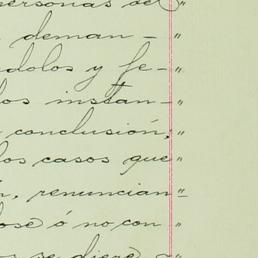 personas de "
deman- "
dolos y fe- "
los instan- "
conclusión; "
los casos que "
renuncian "
dose ó no con "
se diere - "